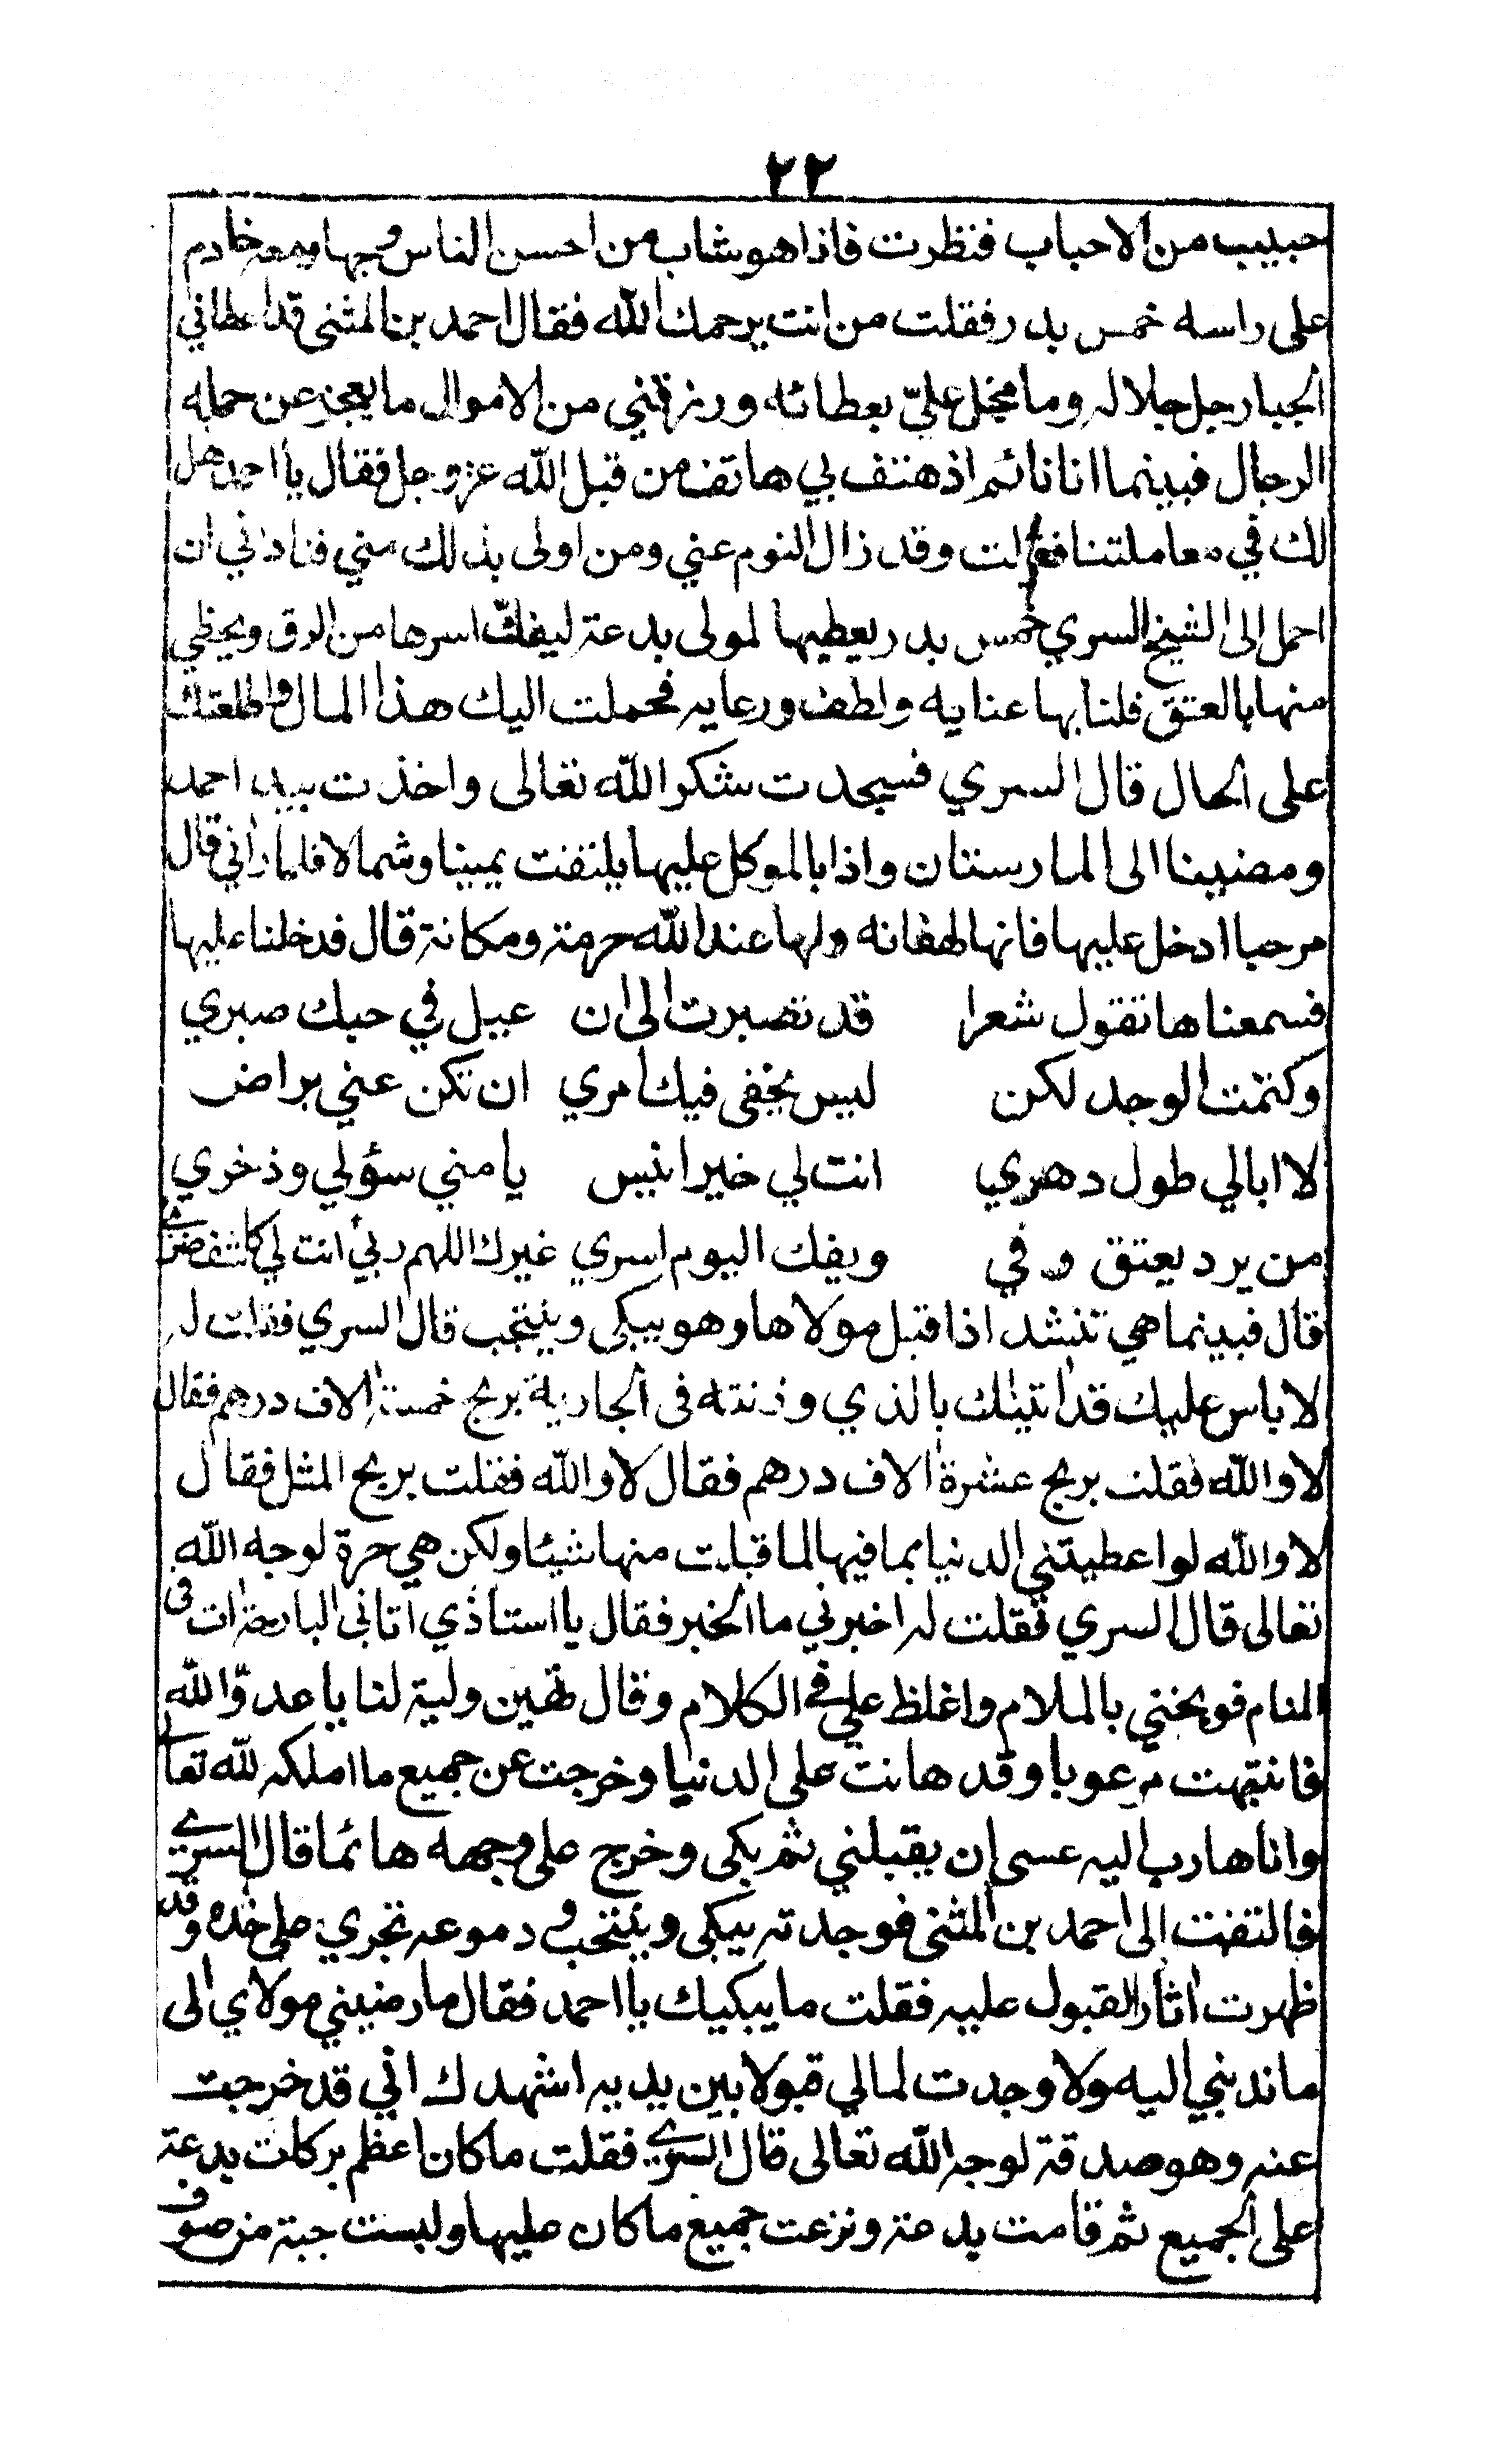 ٢٢
حبيب من الاحباب فنظرت فاذا هو شاب من احسن الناس وجها ومعه خادم
على راسه خمس بدر فقلت من انت يرحمك الله فقال احمد بن المثنى قد اعطاني
الجبار جل جلاله وما بخل علىّ بعطائه ورزقني من الاموال ما يعجز عن حمله
الرجال فبينما انا نائم اذ هتف بي هاتف من قبل الله عز وجل فقال يا احمد هل
لك في معاملتنا فقلت وقد زال النوم عني ومن اولى بذلك مني فناداني ان
احمل الى الشيخ السري خمس بدر يعطيها لمولى بدعة ليفكّ اسرها من الرق ويحظي
منها بالعتق فلنا بها عنايه ولطف ورعايه فحملت اليك هذا المال واطلعتك
على الحال قال السري فسجدت شكرا لله تعالى واخذت بيد احمد
ومضينا الى المارستان واذا بالموكل عليها يلتفت يمينا وشمالا فلما رآني قال
مرحبا ادخل عليها فانها لهفانه ولها عند الله حرمة ومكانة قال فدخلنا عليها
فسمعناها تقول شعرا قد تصبرت الى ان عيل في حبك صبري
وكتمت الوجد لكن ليس يخفى فيك امري ان تكن عني براض
لا ابالي طول دهري انت لي خير انيس يا مني سؤلي وذخري
من يرد يعتق وفي ويفك اليوم اسري غيرك اللهم ربي انت لي كاشف ضري
قال فبينما هي تنشد اذا قبل مولاها وهو يبكى وينتحب قال السري فقلت له
لا باس عليك قد اتيتك بالذي وزنته فى الجارية بربح خمسة الاف درهم فقال
لا والله فقلت بربح عشرة الاف درهم فقال لا والله فقلت بربح المثل فقال
لا والله لو اعطيتني الدنيا بما فيها لما قبلت منها شيئا ولكن هي حرة لوجه الله
تعالى قال السري فقلت له اخبرني ما الخبر فقال يا استاذي اتانى البارحة ات فى
المنام فوبخني بالملام واغلظ علي في الكلام وقال تهين ولية لنا يا عدوّ الله
فانتبهت مرعوبا وقد هانت على الدنيا وخرجت عن جميع ما املكه لله تعالى
وانا هارب اليه عسى ان يقبلني ثم بكى وخرج على وجهه هائما قال السري
فالتفت الى احمد بن المثنى فوجدته يبكى وينتحب ودموعه تجري على خده وقد
ظهرت اثار القبول عليه فقلت ما يبكيك يا احمد فقال ما رضيني مولاي الى
ما ندبني اليه ولا وجدت لمالي قبولا بين يديه اشهدك اني قد خرجت
عنه وهو صدقة لوجه الله تعالى قال السري فقلت ما كان اعظم بركات بدعة
على الجميع ثم قامت بدعة ونزعت جميع ما كان عليها ولبست جبة من صوف